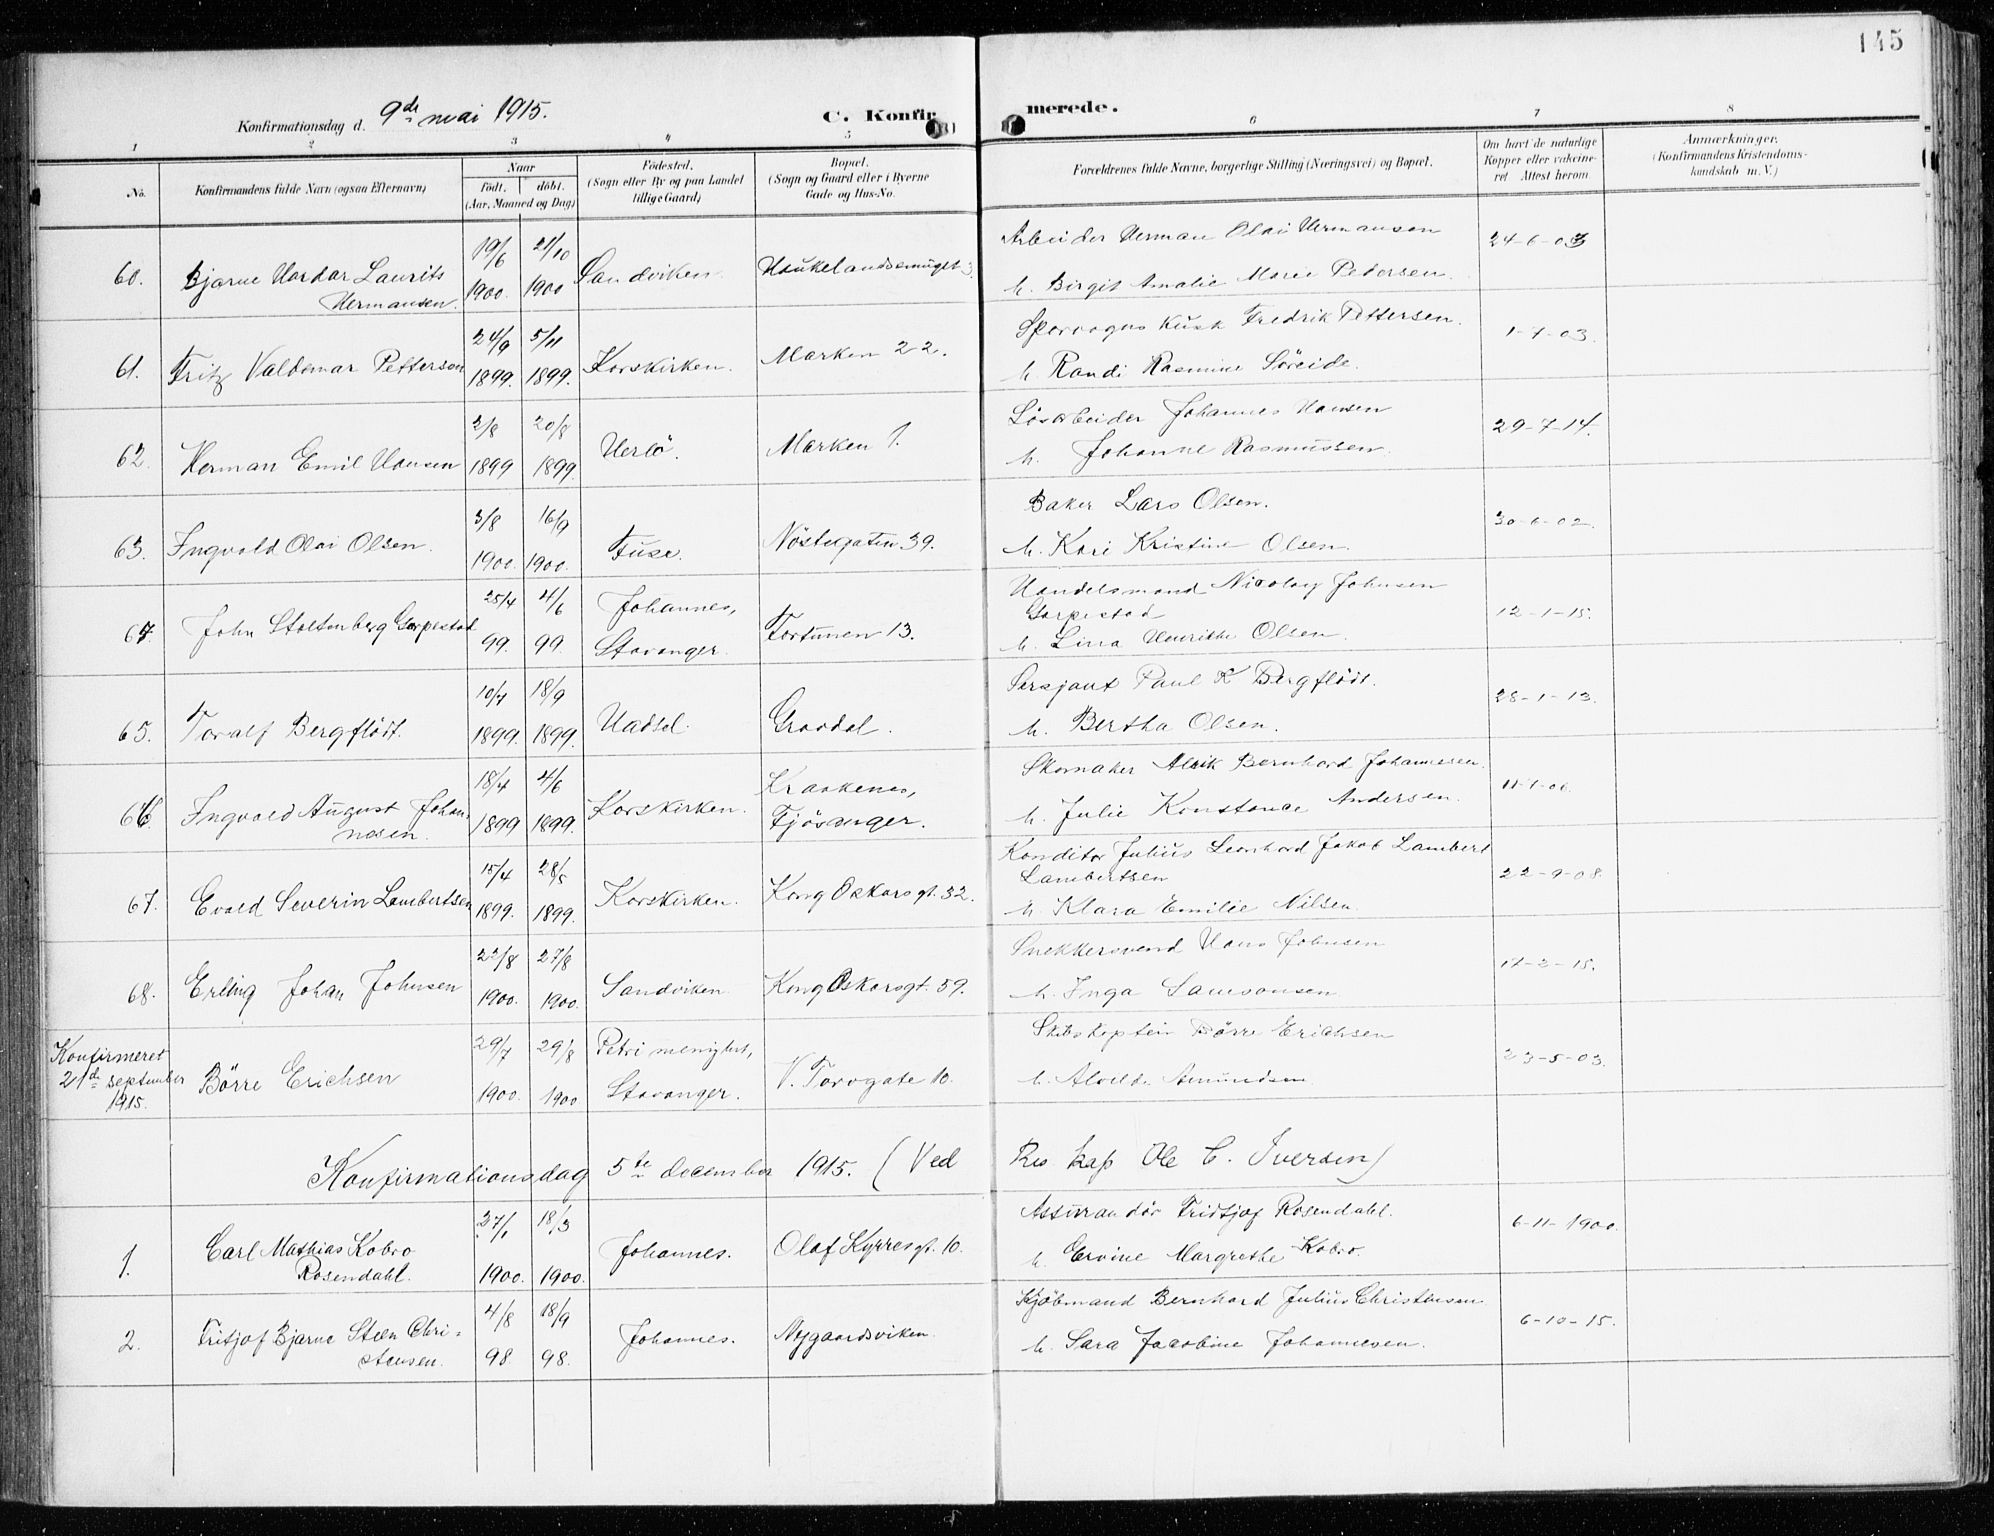 145
Konfirmationsdag d. 9de mai 1915.
C. Konfirmerede.
1 2 3 4 5 6 7 8
No.
Konfirmandens fulde Navn (ogsaa Efternavn)
Naar
født. døbt.
(Aar, Maaned og Dag)
Fødested.
(Sogn eller By og paa Landet
tillige Gaard)
Bopæl.
(Sogn og Gaard eller i Byerne
Gade og Hus-No.
Forældrenes fulde Navne, borgerlige Stilling (Næringsvei) og Bopæl.
Om havt de naturlige
Kopper eller vakcine-
ret Attest herom
Anmærkninger.
(Konfirmandens Kristendoms-
kundskab m. V.)
60. Bjarne Hardar Laurits
Hermansen.
19/6 1900. 21/10 1900
Sandviken.
Haukelandssmuget 3.
Arbeider Herman Olai Hermansen
h. Birgit Amalie Marie Pedersen.
24-6-03
61. Fritz Valdemar Pettersen
24/9 1899. 5/11 1899.
Korskirken.
Marken 22.
Sporvogns kusk Fredrik Pettersen.
h. Randi Rasmine Söreide.
1-7-03.
62. Herman Emil Hansen
2/8 1899 20/8 1899.
Herlö.
Marken 1.
Lösarbeider Johannes Hansen
h. Johanne Rasmussen.
29-7-14.
63. Ingvald Olai Olsen.
3/8 1900. 16/9 1900.
Fuse.
Nöstegaten 39.
Baker Lars Olsen.
h. Kari Kristine Olsen.
30-6-02.
64. John Stoltenberg Garpestad
25/4 99. 4/6 99.
Johannes,
Stavanger.
Fortunen 13.
Handelsmand Nicolay Johnsen
Garpestad
h. Lina Henrikke Olsen.
12-1-15.
65. Toralf Bergflödt.
10/7 1899. 18/9 1899.
Hadsel.
Gravdal.
Sersjant Paul K Bergflödt.
h. Bertha Olsen.
28-1-13.
66. Ingvald August Johan-
nesen.
18/4 1899 4/6 1899.
Korskirken.
Kraakenes,
Fjösanger.
Skomaker Alrik Bernhard Johannesen.
h. Julie Konstance Andersen.
11-1-06.
67. Evald Severin Lambertsen
15/4 1899. 28/5 1899.
Korskirken.
Kong Oskarsgt. 32.
Konditor Julius Leonhard Jakob Lambert
Lambertsen
h. Klara Emilie Nilsen.
22-9-08.
68. Erling Johan Johnsen
22/8 1900. 27/8 1900.
Sandviken.
Kong Oskarsgt. 59.
Snekkersvend Hans Johnsen
h. Inga Samsonsen.
17-2-15.
Konfirmeret
21de september
1915.
Börre Erichsen
29/7 1900. 29/8 1900
Petri menighet,
Stavanger.
V. Torvgate 10.
Skibskaptein Börre Erichsen
h. Alvilde Amundsen.
23-5-03.
Konfirmationsdag 5te december 1915. (Ved Res. kap Ole C. Iversen)
1. Carl Mathias Kobro
Rosendahl.
27/1 1900. 18/3 1900.
Johannes.
Olaf Kyrresgt. 10.
Assurandör Fridtjof Rosendahl.
h. Ervine Margrethe Kobro.
6-11-1900.
2. Fritjof Bjarne Steen Chri-
stensen.
4/8 98. 18/9 98.
Johannes.
Nygaardsviken.
Kjöbmand Bernhard Julius Christensen
h. Sara Jacobine Johannesen.
6-10-15.